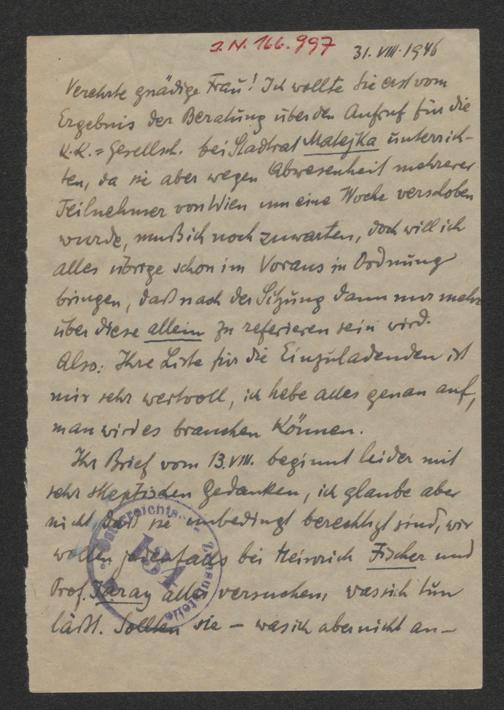 J.N. 166.997 31. VIII. 1946
Verehrte gnädige Frau! Ich wollte Sie erst vom
Ergebnis der Beratung über den Aufruf für die
K.K.=Gesellsch. bei Stadtrat Matejka unterrich-
ten, da sie aber wegen Abwesenheit mehrerer
Teilnehmer von Wien um eine Woche verschoben
wurde, muß ich noch zuwarten, doch will ich
alles übrige schon im Voraus in Ordnung
bringen, daß nach der Sitzung dann nur mehr
über diese allein zu referieren sein wird.
Also: Ihre Liste für die Einzuladenden ist
mir sehr wertvoll, ich hebe alles genau auf,
man wird es brauchen können.
Ihr Brief vom 13. VIII. beginnt leider mit
sehr skeptischen Gedanken, ich glaube aber
nicht daß sie unbedingt berechtigt sind, wir
wollen jedenfalls bei Heinrich Fischer und
Prof. Jaray alles versuchen, was sich tun
läßt. Sollten sie – was ich aber nicht an–
Österreichische
181